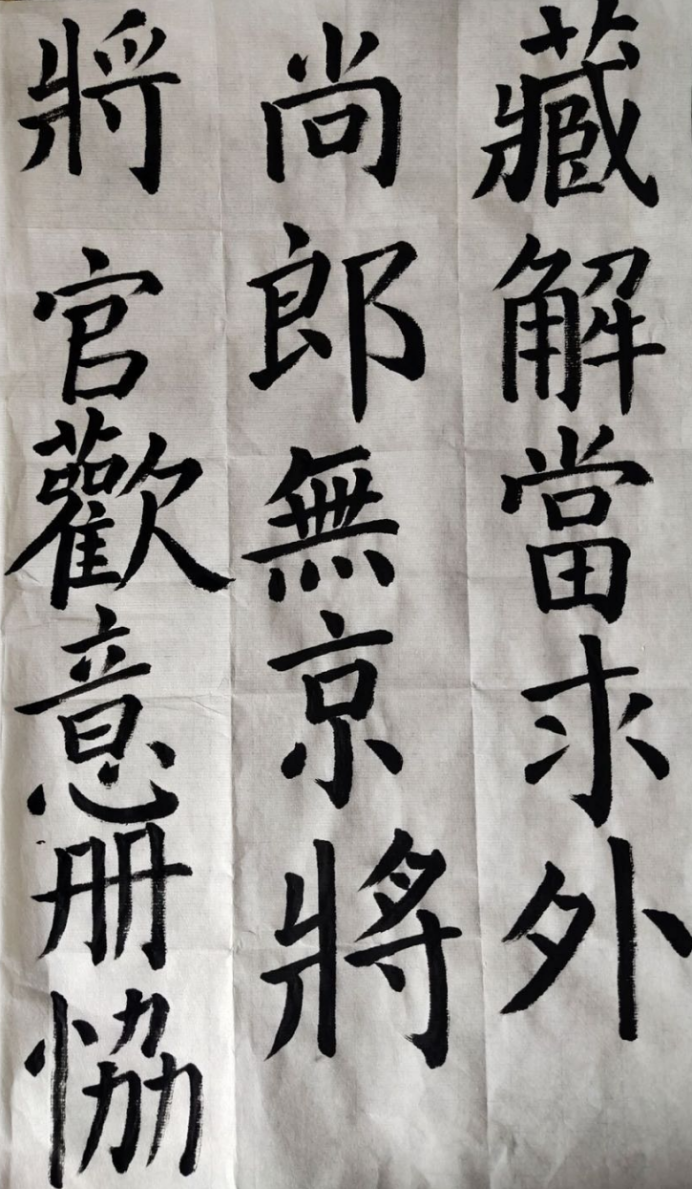 藏解當求外
尚郎無京將
將官歡意册恊